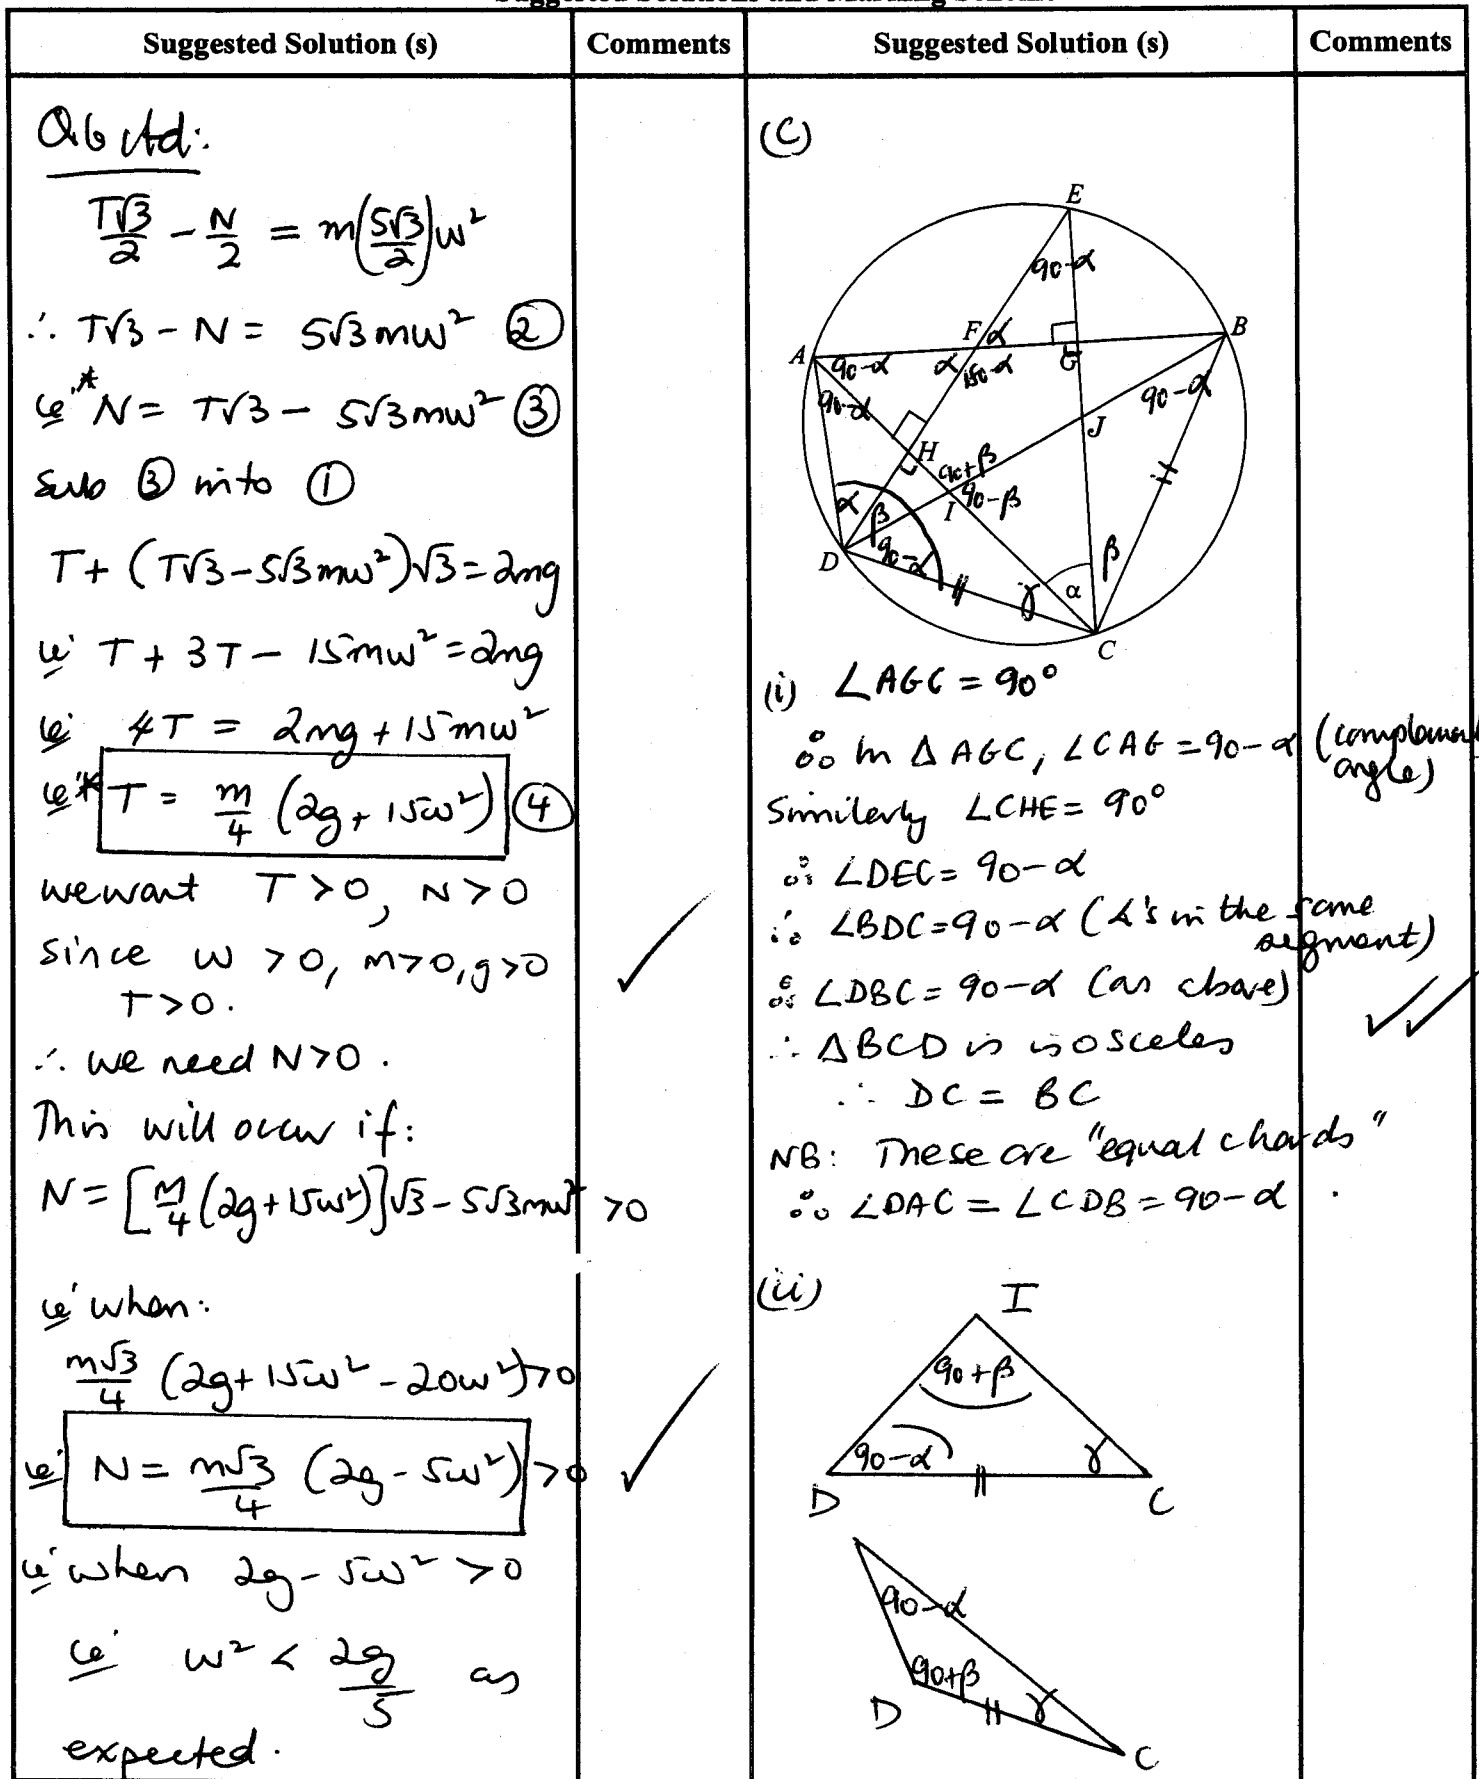 Suggested Solution (s)
Comments
Suggested Solution (s)
Comments
T√3/2 - N/2 = m(5√3/2)ω²
∴ T√3 - N = 5√3mω² ②
ie* N = T√3 - 5√3mω² ③
Sub ③ into ①
T + (T√3 - 5√3mω²)√3 = 2mg
ie T + 3T - 15mω² = 2mg
ie 4T = 2mg + 15mω²
ie* T = m/4 (2g + 15ω²) ④
we want T > 0, N > 0
since ω > 0, m > 0, g > 0
T > 0.
∴ we need N > 0.
This will occur if:
N = [m/4 (2g + 15ω²)]√3 - 5√3mω² > 0
ie when:
m√3/4 (2g + 15ω² - 20ω²) > 0
ie N = m√3/4 (2g - 5ω²) > 0
ie when 2g - 5ω² > 0
ie ω² < 2g/5 as
expected.
(C)
E
90-α
A
F
α
G
B
90-α
α
180-α
90-α
90-α
J
H
90+β
I
90-β
α
β
90-α
D
γ
α
β
C
(i) ∠AGC = 90°
∴ In Δ AGC, ∠CAG = 90-α (complement
angle)
Similarly ∠CHE = 90°
∴ ∠DEC = 90-α
∴ ∠BDC = 90-α (∠'s in the same
segment)
∴ ∠DBC = 90-α (as above)
∴ ΔBCD is isosceles
∴ DC = BC
NB: These are "equal chords"
∴ ∠DAC = ∠CDB = 90-α.
(ii)
I
90+β
90-α
γ
D
C
90-α
90+β
γ
D
C